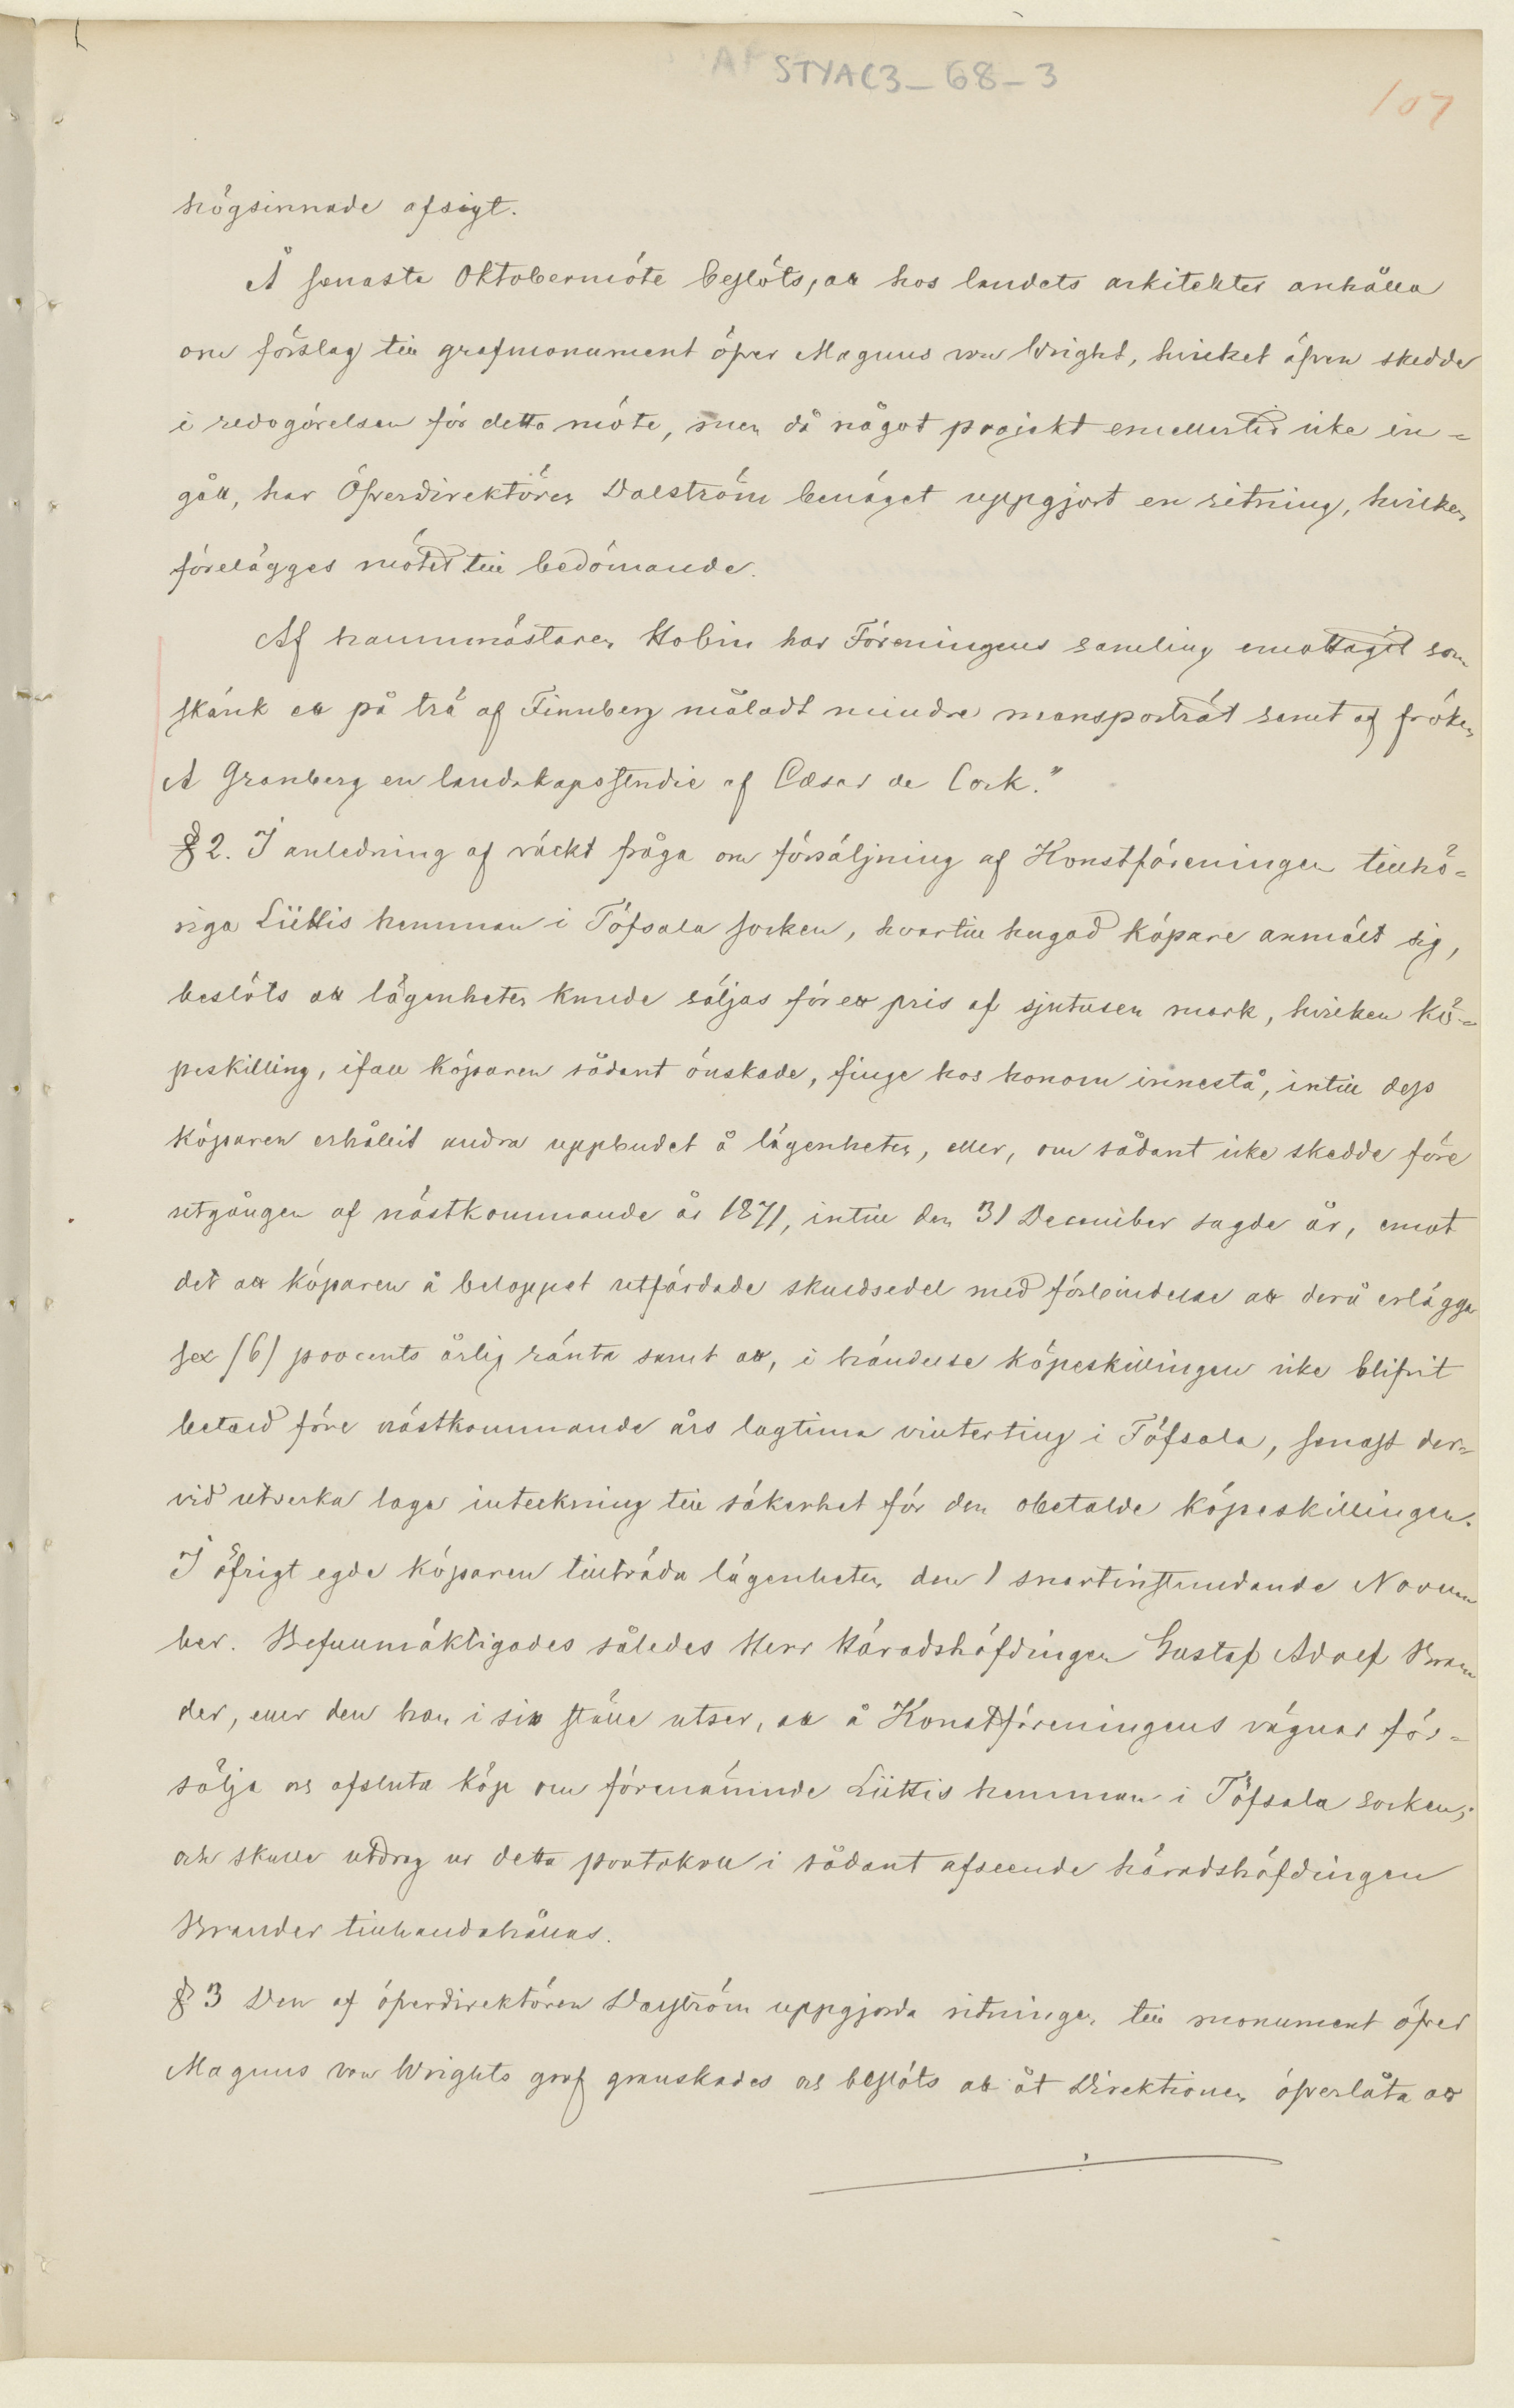 STYAC3_68_3
107
högsinnade afsigt.
Å senaste Oktobermöte beslöts, att hos landets arkitekter anhålla
om förslag till grafmonument öfver Magnus von Wright, hvilket äfven skedde
i redogörelsen för detta möte, men då något projekt emellertid icke in-
gått, har Öfverdirektören Dalström benäget uppgjort en ritning, hvilken
förelägges mötet till bedömande.
Af kammästaren Hobin har Föreningens samling emottagit som
skänk ett på trä af Finnberg måladt mindre mansporträt samt af fröken
A Granberg en landskapsstudie af Cæsar de Cock."
§ 2. I anledning af väckt fråga om försäljning af Konstföreningen tillhö-
riga Liittis hemman i Töfsala socken, hvartill hugad köpare anmält sig,
beslöts att lägenheten kunde säljas för ett pris af sjutusen mark, hvilken kö-
peskilling, ifall köparen sådant önskade, finge hos honom innestå, intill dess
köparen erhållit andra uppbudet å lägenheten, eller, om sådant icke skedde före
utgången af nästkommande år 1871, intill den 31 December sagde år, emot
det att köparen å beloppet utfärdade skuldsedel med förbindelse att derå erlägga
sex (6) procents årlig ränta samt att, i händelse köpeskillingen icke blifvit
betald före nästkommande års lagtima vinterting i Töfsala, senast der-
vid utverka laga inteckning till säkerhet för den obetalde köpeskillingen.
I öfrigt egde köparen tillträda lägenheten den 1 snartinstundande Novem
ber. Befullmäktigades således Herr Häradshöfdingen Gustaf Adolf Bran
der, eller den han i sitt ställe utser, att å Konstföreningens vägnar för-
sälja och afsluta köp om förenämnde Liittis hemman i Töfsala socken;
och skulle utdrag ur detta protokoll i sådant afseende häradshöfdingen
Brander tillhandahållas.
§ 3 Den af öfverdirektören Dalström uppgjorda ritningen till monument öfver
Magnus von Wrights graf granskades och beslöts att åt Direktionen öfverlåta att